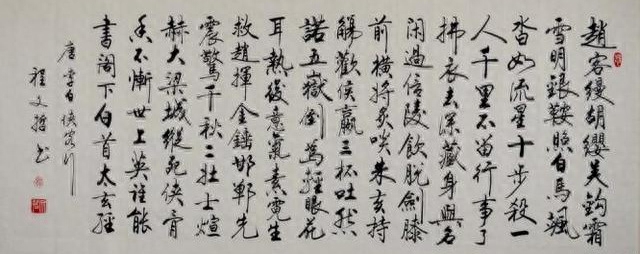 趙客縵胡纓吴鈎霜
雪明銀鞍照白馬颯
沓如流星十步殺一
人千里不留行事了
拂衣去深藏身與名
闲過信陵飲脱劍膝
前横將炙啖朱亥持
觴勸侯嬴三杯吐然
諾五嶽倒為輕眼花
耳熱後意氣素霓生
救趙揮金錘邯鄲先
震驚千秋二壮士煊
赫大梁城縱死俠骨
香不慚世上英誰能
書閣下白首太玄經
唐李白俠客行
程文哲書